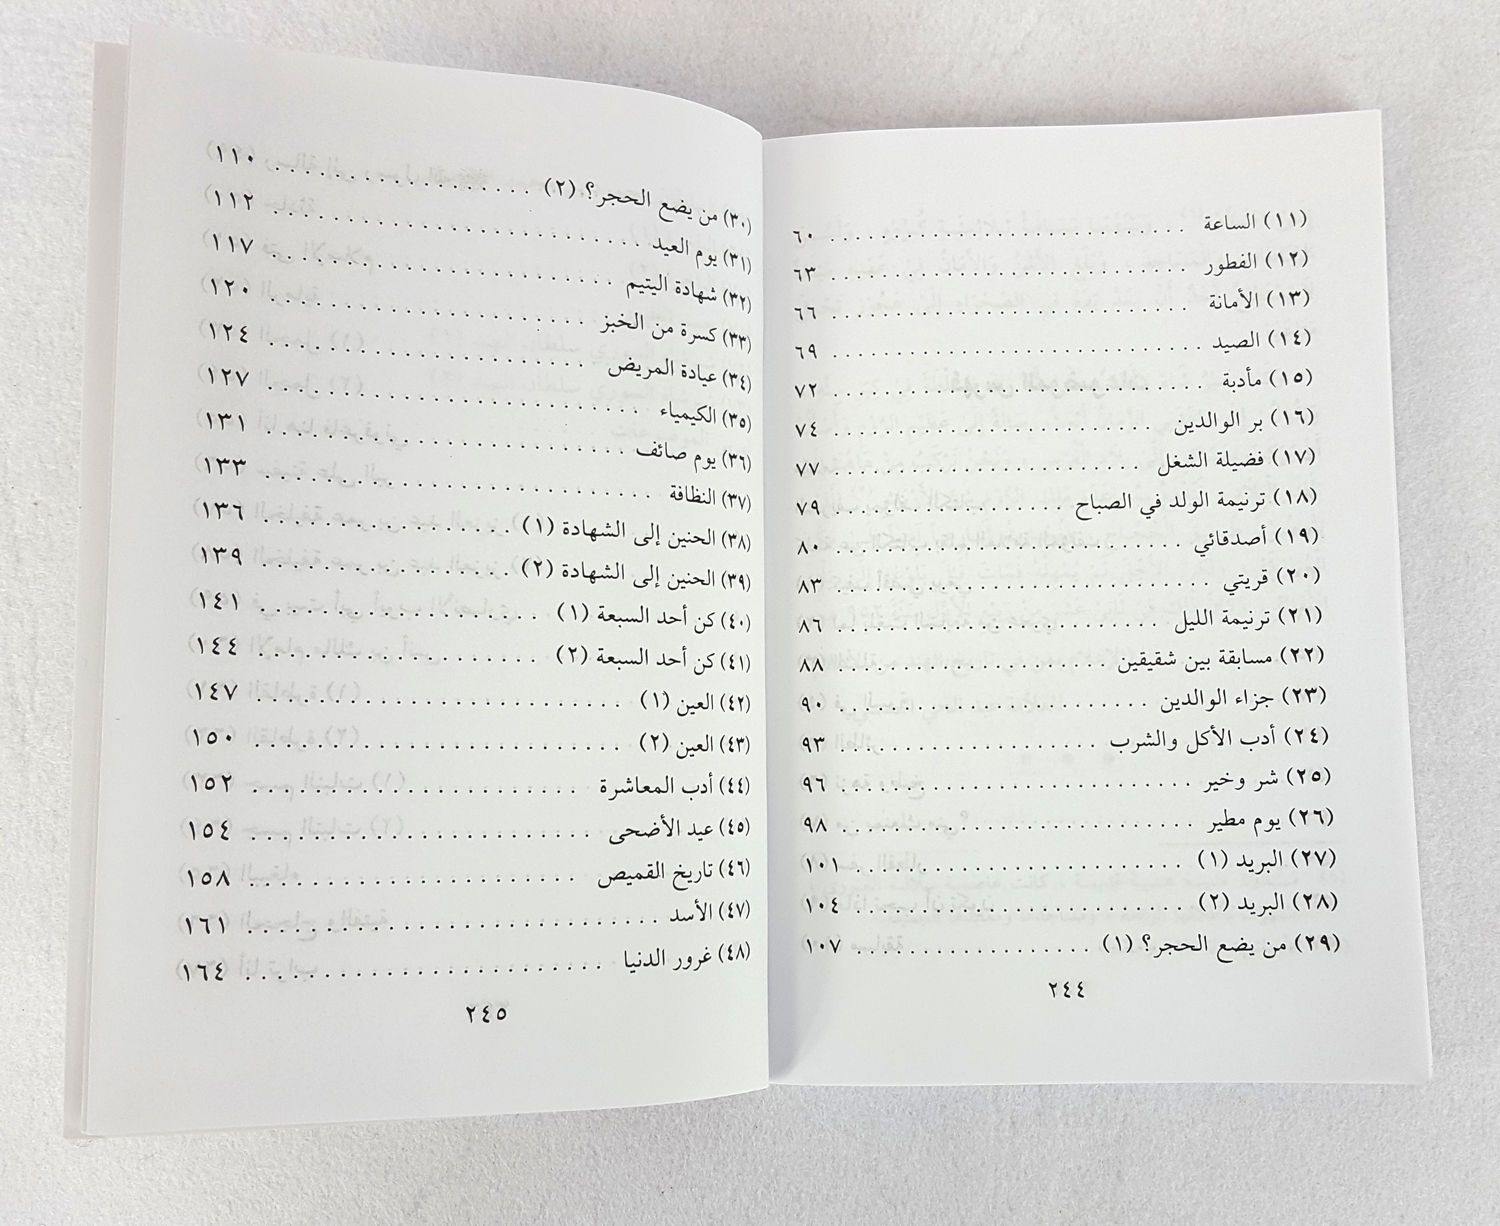 (١١) الساعة . . . . . . . . . . . . . . . . . . . . . . . . . . . ٦٠
(١٢) الفطور . . . . . . . . . . . . . . . . . . . . . . . . . . . ٦٣
(١٣) الأمانة . . . . . . . . . . . . . . . . . . . . . . . . . . . ٦٦
(١٤) الصيد . . . . . . . . . . . . . . . . . . . . . . . . . . . ٦٩
(١٥) مأدبة . . . . . . . . . . . . . . . . . . . . . . . . . . . ٧٢
(١٦) بر الوالدين . . . . . . . . . . . . . . . . . . . . . . . . ٧٤
(١٧) فضيلة الشغل . . . . . . . . . . . . . . . . . . . . . . . ٧٧
(١٨) ترنيمة الولد في الصباح . . . . . . . . . . . . . . . . . ٧٩
(١٩) أصدقائي . . . . . . . . . . . . . . . . . . . . . . . . . . ٨٠
(٢٠) قريتي . . . . . . . . . . . . . . . . . . . . . . . . . . . . ٨٣
(٢١) ترنيمة الليل . . . . . . . . . . . . . . . . . . . . . . . . ٨٦
(٢٢) مسابقة بين شقيقين . . . . . . . . . . . . . . . . . . . . ٨٨
(٢٣) جزاء الوالدين . . . . . . . . . . . . . . . . . . . . . . . ٩٠
(٢٤) أدب الأكل والشرب . . . . . . . . . . . . . . . . . . . . ٩٣
(٢٥) شر وخير . . . . . . . . . . . . . . . . . . . . . . . . . . ٩٦
(٢٦) يوم مطير . . . . . . . . . . . . . . . . . . . . . . . . . . ٩٨
(٢٧) البريد (١) . . . . . . . . . . . . . . . . . . . . . . . . . ١٠١
(٢٨) البريد (٢) . . . . . . . . . . . . . . . . . . . . . . . . . ١٠٤
(٢٩) من يضع الحجر؟ (١) . . . . . . . . . . . . . . . . . . ١٠٧
٢٤٤
(٣٠) من يضع الحجر؟ (٢) . . . . . . . . . . . . . . . . . . ١١٠
(٣١) يوم العيد . . . . . . . . . . . . . . . . . . . . . . . . . . ١١٢
(٣٢) شهادة اليتيم . . . . . . . . . . . . . . . . . . . . . . . . ١١٧
(٣٣) كسرة من الخبز . . . . . . . . . . . . . . . . . . . . . . ١٢٠
(٣٤) عيادة المريض . . . . . . . . . . . . . . . . . . . . . . . ١٢٤
(٣٥) الكيمياء . . . . . . . . . . . . . . . . . . . . . . . . . . . ١٢٧
(٣٦) يوم صائف . . . . . . . . . . . . . . . . . . . . . . . . . ١٣١
(٣٧) النظافة . . . . . . . . . . . . . . . . . . . . . . . . . . . . ١٣٣
(٣٨) الحنين إلى الشهادة (١) . . . . . . . . . . . . . . . . . ١٣٦
(٣٩) الحنين إلى الشهادة (٢) . . . . . . . . . . . . . . . . . ١٣٩
(٤٠) كن أحد السبعة (١) . . . . . . . . . . . . . . . . . . . . ١٤١
(٤١) كن أحد السبعة (٢) . . . . . . . . . . . . . . . . . . . . ١٤٤
(٤٢) العين (١) . . . . . . . . . . . . . . . . . . . . . . . . . . ١٤٧
(٤٣) العين (٢) . . . . . . . . . . . . . . . . . . . . . . . . . . ١٥٠
(٤٤) أدب المعاشرة . . . . . . . . . . . . . . . . . . . . . . . ١٥٢
(٤٥) عيد الأضحى . . . . . . . . . . . . . . . . . . . . . . . . ١٥٤
(٤٦) تاريخ القميص . . . . . . . . . . . . . . . . . . . . . . . ١٥٨
(٤٧) الأسد . . . . . . . . . . . . . . . . . . . . . . . . . . . . ١٦١
(٤٨) غرور الدنيا . . . . . . . . . . . . . . . . . . . . . . . . ١٦٤
٢٤٥